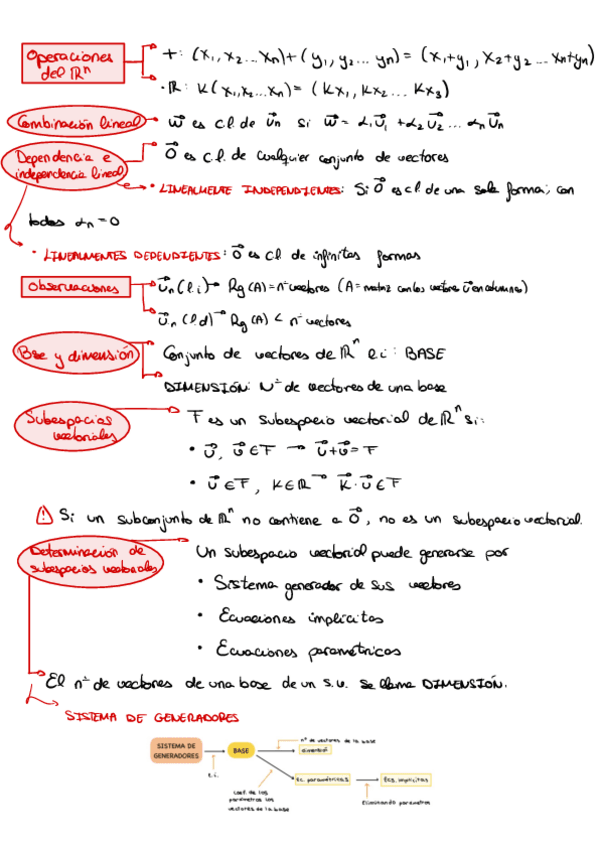 Operaciones del ℝⁿ
+: (x₁, x₂ ... xₙ) + (y₁, y₂ ... yₙ) = (x₁+y₁, x₂+y₂ ... xₙ+yₙ)
·ℝ: K(x₁, x₂...xₙ) = (Kx₁, Kx₂ ... Kx₃)
Combinación lineal
w⃗ es c.l. de u⃗ₙ si w⃗ = α₁u⃗₁ + α₂u⃗₂ ... αₙu⃗ₙ
Dependencia e independencia lineal
0⃗ es c.l. de cualquier conjunto de vectores
• LINEALMENTE INDEPENDIENTES: Si 0⃗ es c.l de una sola forma; con
todos αₙ = 0
• LINEALMENTES DEPENDIENTES: 0⃗ es c.l. de infinitas formas
Observaciones
u⃗ₙ (l.i) → Rg(A) = nº vectores (A = matriz con los vectores u⃗ en columnas)
u⃗ₙ (l.d) → Rg(A) < nº vectores
Base y dimensión
Conjunto de vectores de ℝⁿ l.i : BASE
DIMENSIÓN: Nº de vectores de una base
Subespacios vectoriales
F es un subespacio vectorial de ℝⁿ si:
• u⃗, v⃗ ∈ F → u⃗+v⃗ = F
• u⃗ ∈ F, K ∈ ℝ → K⃗·u⃗ ∈ F
⚠ Si un subconjunto de ℝⁿ no contiene a 0⃗, no es un subespacio vectorial.
Determinación de subespacios vectoriales
Un subespacio vectorial puede generarse por
• Sistema generador de sus vectores
• Ecuaciones implícitas
• Ecuaciones paramétricas
El nº de vectores de una base de un s.v. se llama DIMENSIÓN.
SISTEMA DE GENERADORES
nº de vectores de la base
SISTEMA DE
GENERADORES
BASE
dimensión
l.i.
Ec. paramétricas
Ecs. implícitas
Coef. de los
parámetros los
vectores de la base
Eliminando parámetros